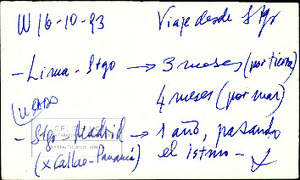 W/6-10-93 Viaje desde Stgo
- Lima - Stgo → 3 meses (por tierra)
4 meses (por mar)
- Stgo - Madrid → 1 año, pasando
(x Callao - Panamá) el istmo -